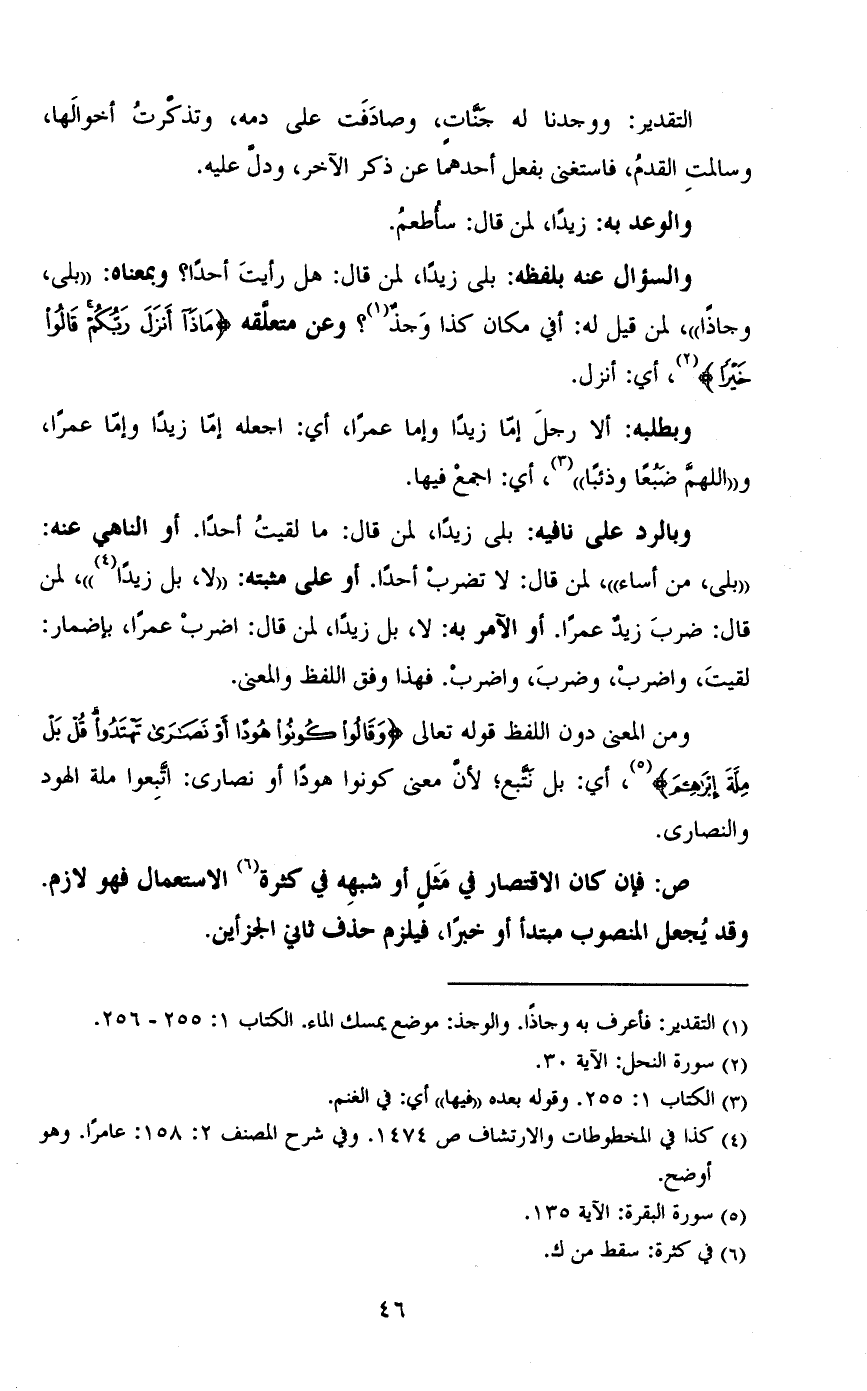 التقدير: ووجدنا له جَنَّاتٍ، وصادَفَت على دمه، وتذكَّرتُ أخوالَها،
وسالمتِ القدمُ، فاستغنى بفعل أحدهما عن ذكر الآخر، ودلَّ عليه.
والوعد به: زيدًا، لمن قال: سأُطعمُ.
والسؤال عنه بلفظه: بلى زيدًا، لمن قال: هل رأيتَ أحدًا؟ وبمعناه: «بلى،
وجاذًا»، لمن قيل له: أفي مكان كذا وَجذٌ(١)؟ وعن متعلَّقه ﴿مَاذَآ أَنزَلَ رَبُّكُمْۚ قَالُوا۟
خَيْرًا﴾(٢)، أي: أنزل.
وبطلبه: ألا رجلَ إمّا زيدًا وإما عمرًا، أي: اجعله إمّا زيدًا وإمّا عمرًا،
و«اللهمَّ ضَبُعًا وذئبًا»(٣)، أي: اجمعْ فيها.
وبالرد على نافيه: بلى زيدًا، لمن قال: ما لقيتُ أحدًا. أو الناهي عنه:
«بلى، من أساء»، لمن قال: لا تضربْ أحدًا. أو على مثبته: «لا، بل زيدًا(٤)»، لمن
قال: ضربَ زيدٌ عمرًا. أو الآمر به: لا، بل زيدًا، لمن قال: اضربْ عمرًا، بإضمار:
لقيتَ، واضربْ، وضربَ، واضربْ. فهذا وفق اللفظ والمعنى.
ومن المعنى دون اللفظ قوله تعالى ﴿وَقَالُوا۟ كُونُوا۟ هُودًا أَوْ نَصَٰرَىٰ تَهْتَدُوا۟ۗ قُلْ بَلْ
مِلَّةَ إِبْرَٰهِـۧمَ﴾(٥)، أي: بل نَتَّبع؛ لأنَّ معنى كونوا هودًا أو نصارى: اتَّبِعوا ملة الهود
والنصارى.
ص: فإن كان الاقتصار في مَثَلٍ أو شبهِه في كثرة(٦) الاستعمال فهو لازم.
وقد يُجعل المنصوب مبتدأ أو خبرًا، فيلزم حذف ثاني الجزأين.
(١) التقدير: فأعرف به وجاذًا. والوجذ: موضع يمسك الماء. الكتاب ١: ٢٥٥ - ٢٥٦.
(٢) سورة النحل: الآية ٣٠.
(٣) الكتاب ١: ٢٥٥. وقوله بعده «فيها» أي: في الغنم.
(٤) كذا في المخطوطات والارتشاف ص ١٤٧٤. وفي شرح المصنف ٢: ١٥٨: عامرًا. وهو
أوضح.
(٥) سورة البقرة: الآية ١٣٥.
(٦) في كثرة: سقط من ك.
٤٦